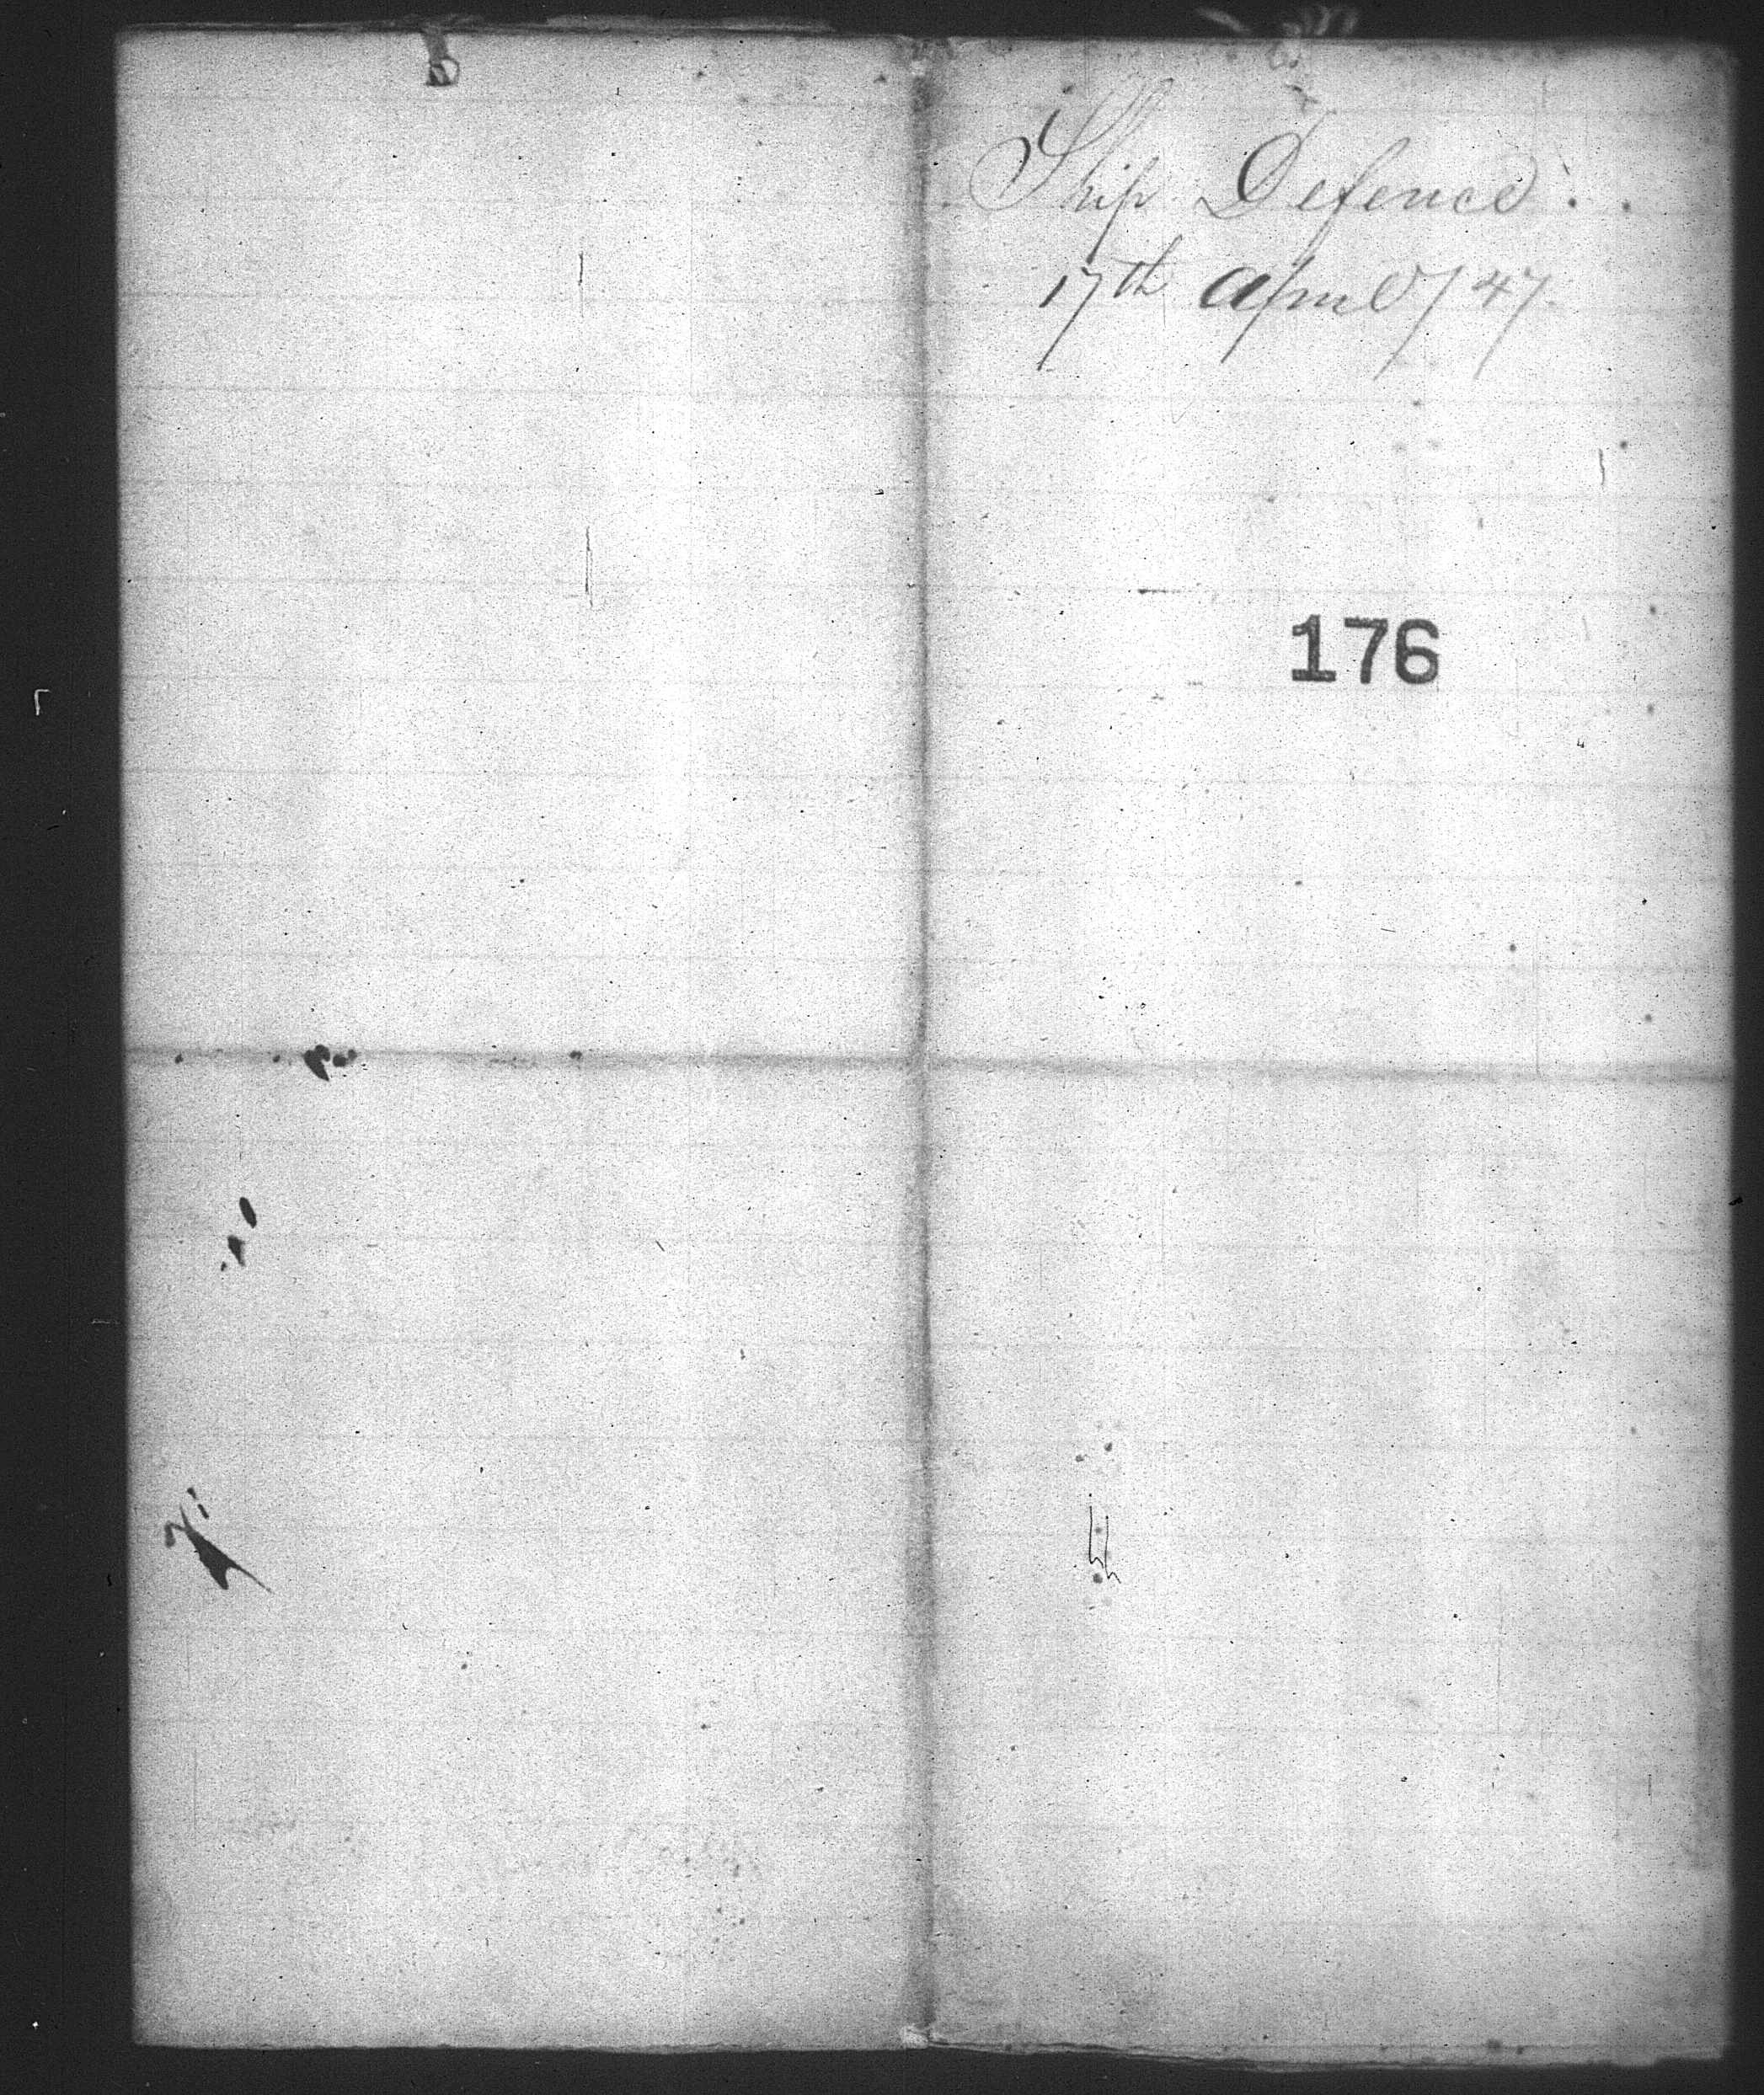 Ship Defence.
17th April / 47.
176